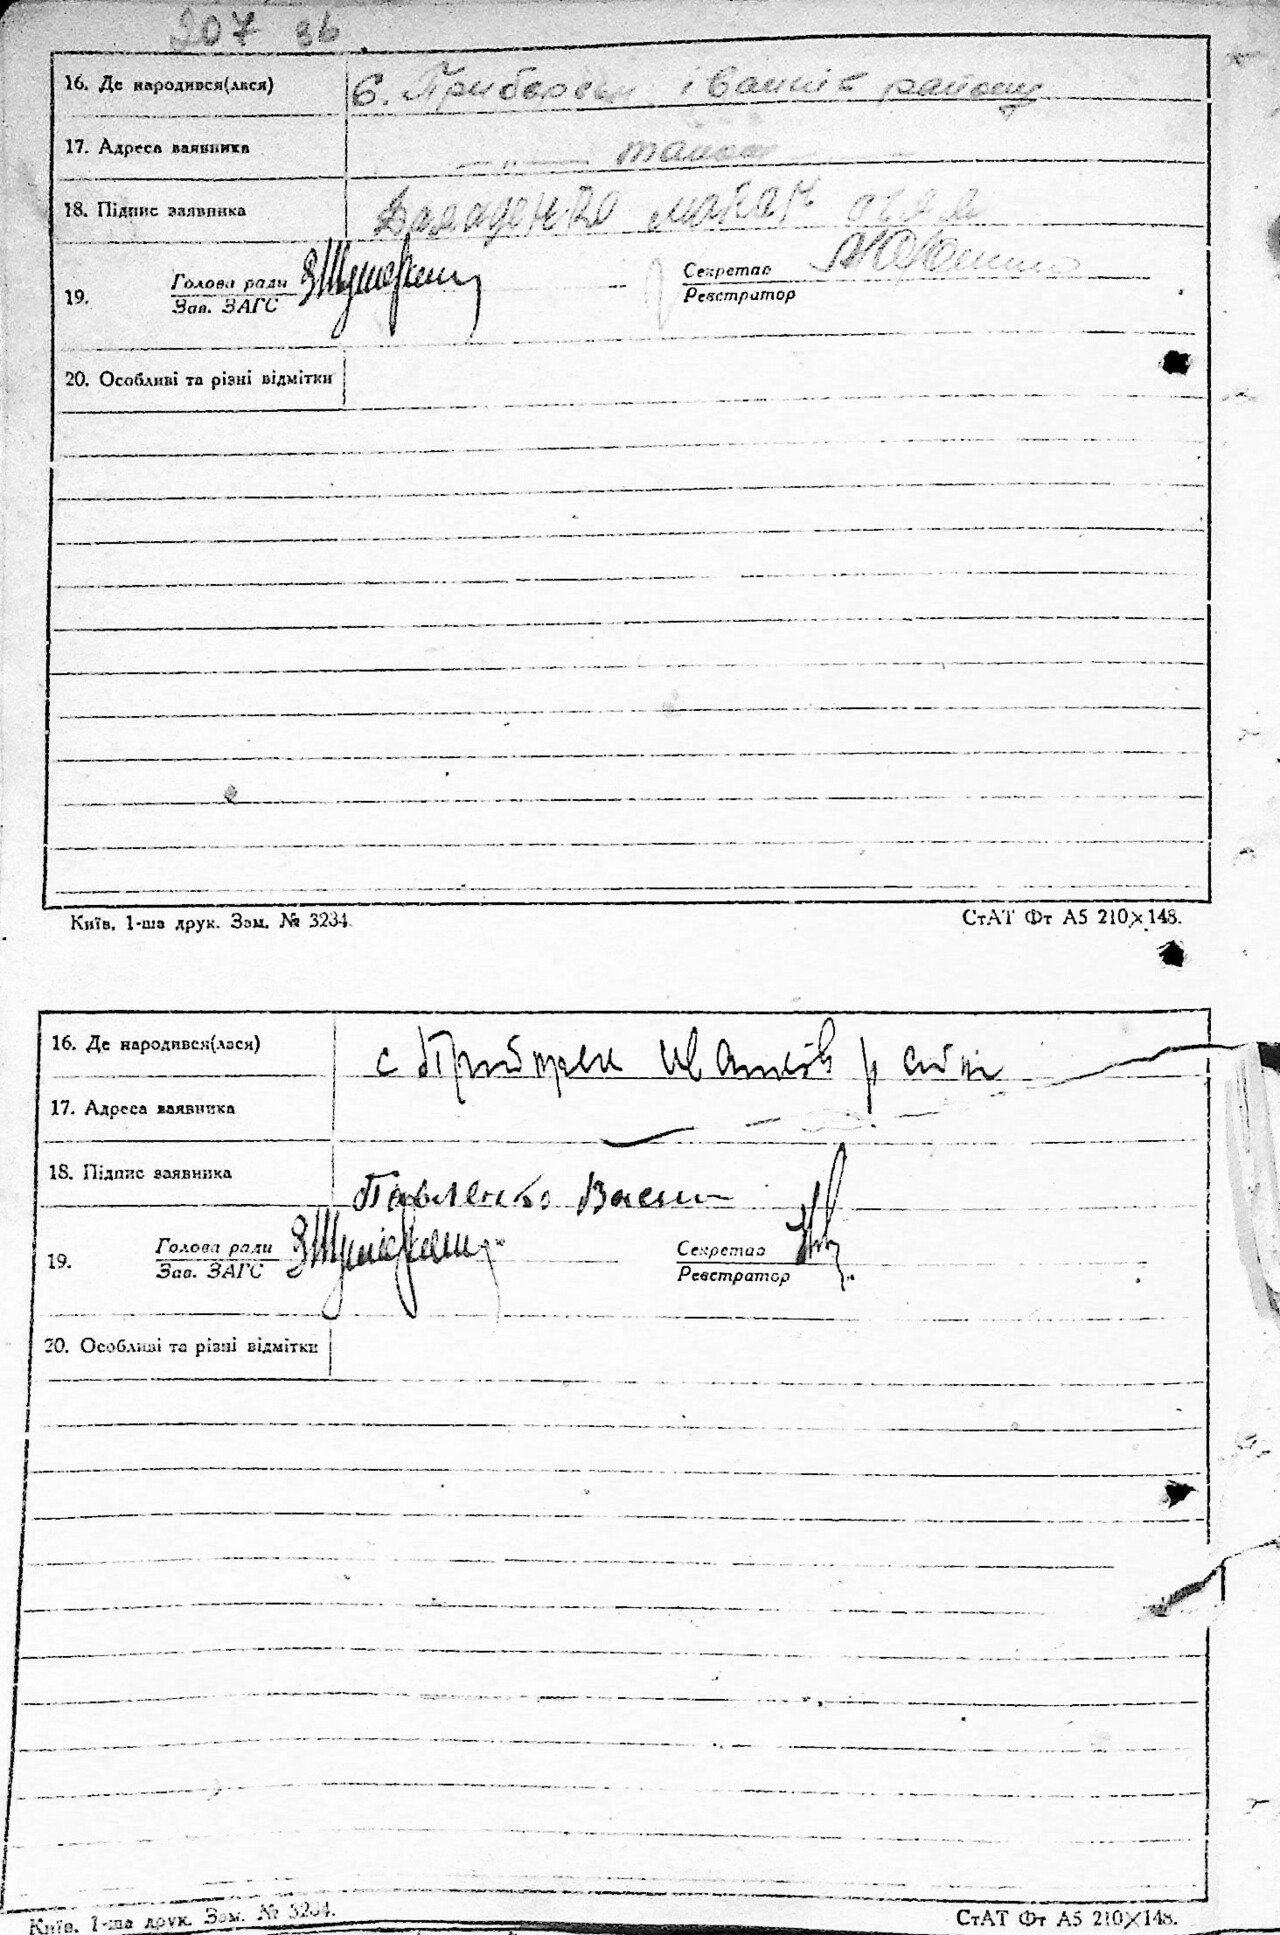 207 зв
16. Де народився(лася) с. Приборськ Іванків району
17. Адреса заявника — „ —
18. Підпис заявника
19. Голова ради Секретар
Зав. ЗАГС Реєстратор
20. Особливі та різні відмітки
Київ, 1-ша друк. Зам. № 3234. СтАТ Фт А5 210×148.
16. Де народився(лася) с Приборськ Іванків район
17. Адреса заявника
18. Підпис заявника Павленко Васил
19. Голова ради Секретар
Зав. ЗАГС Реєстратор
20. Особливі та різні відмітки
Київ, 1-ша друк. Зам. № 3234. СтАТ Фт А5 210×148.